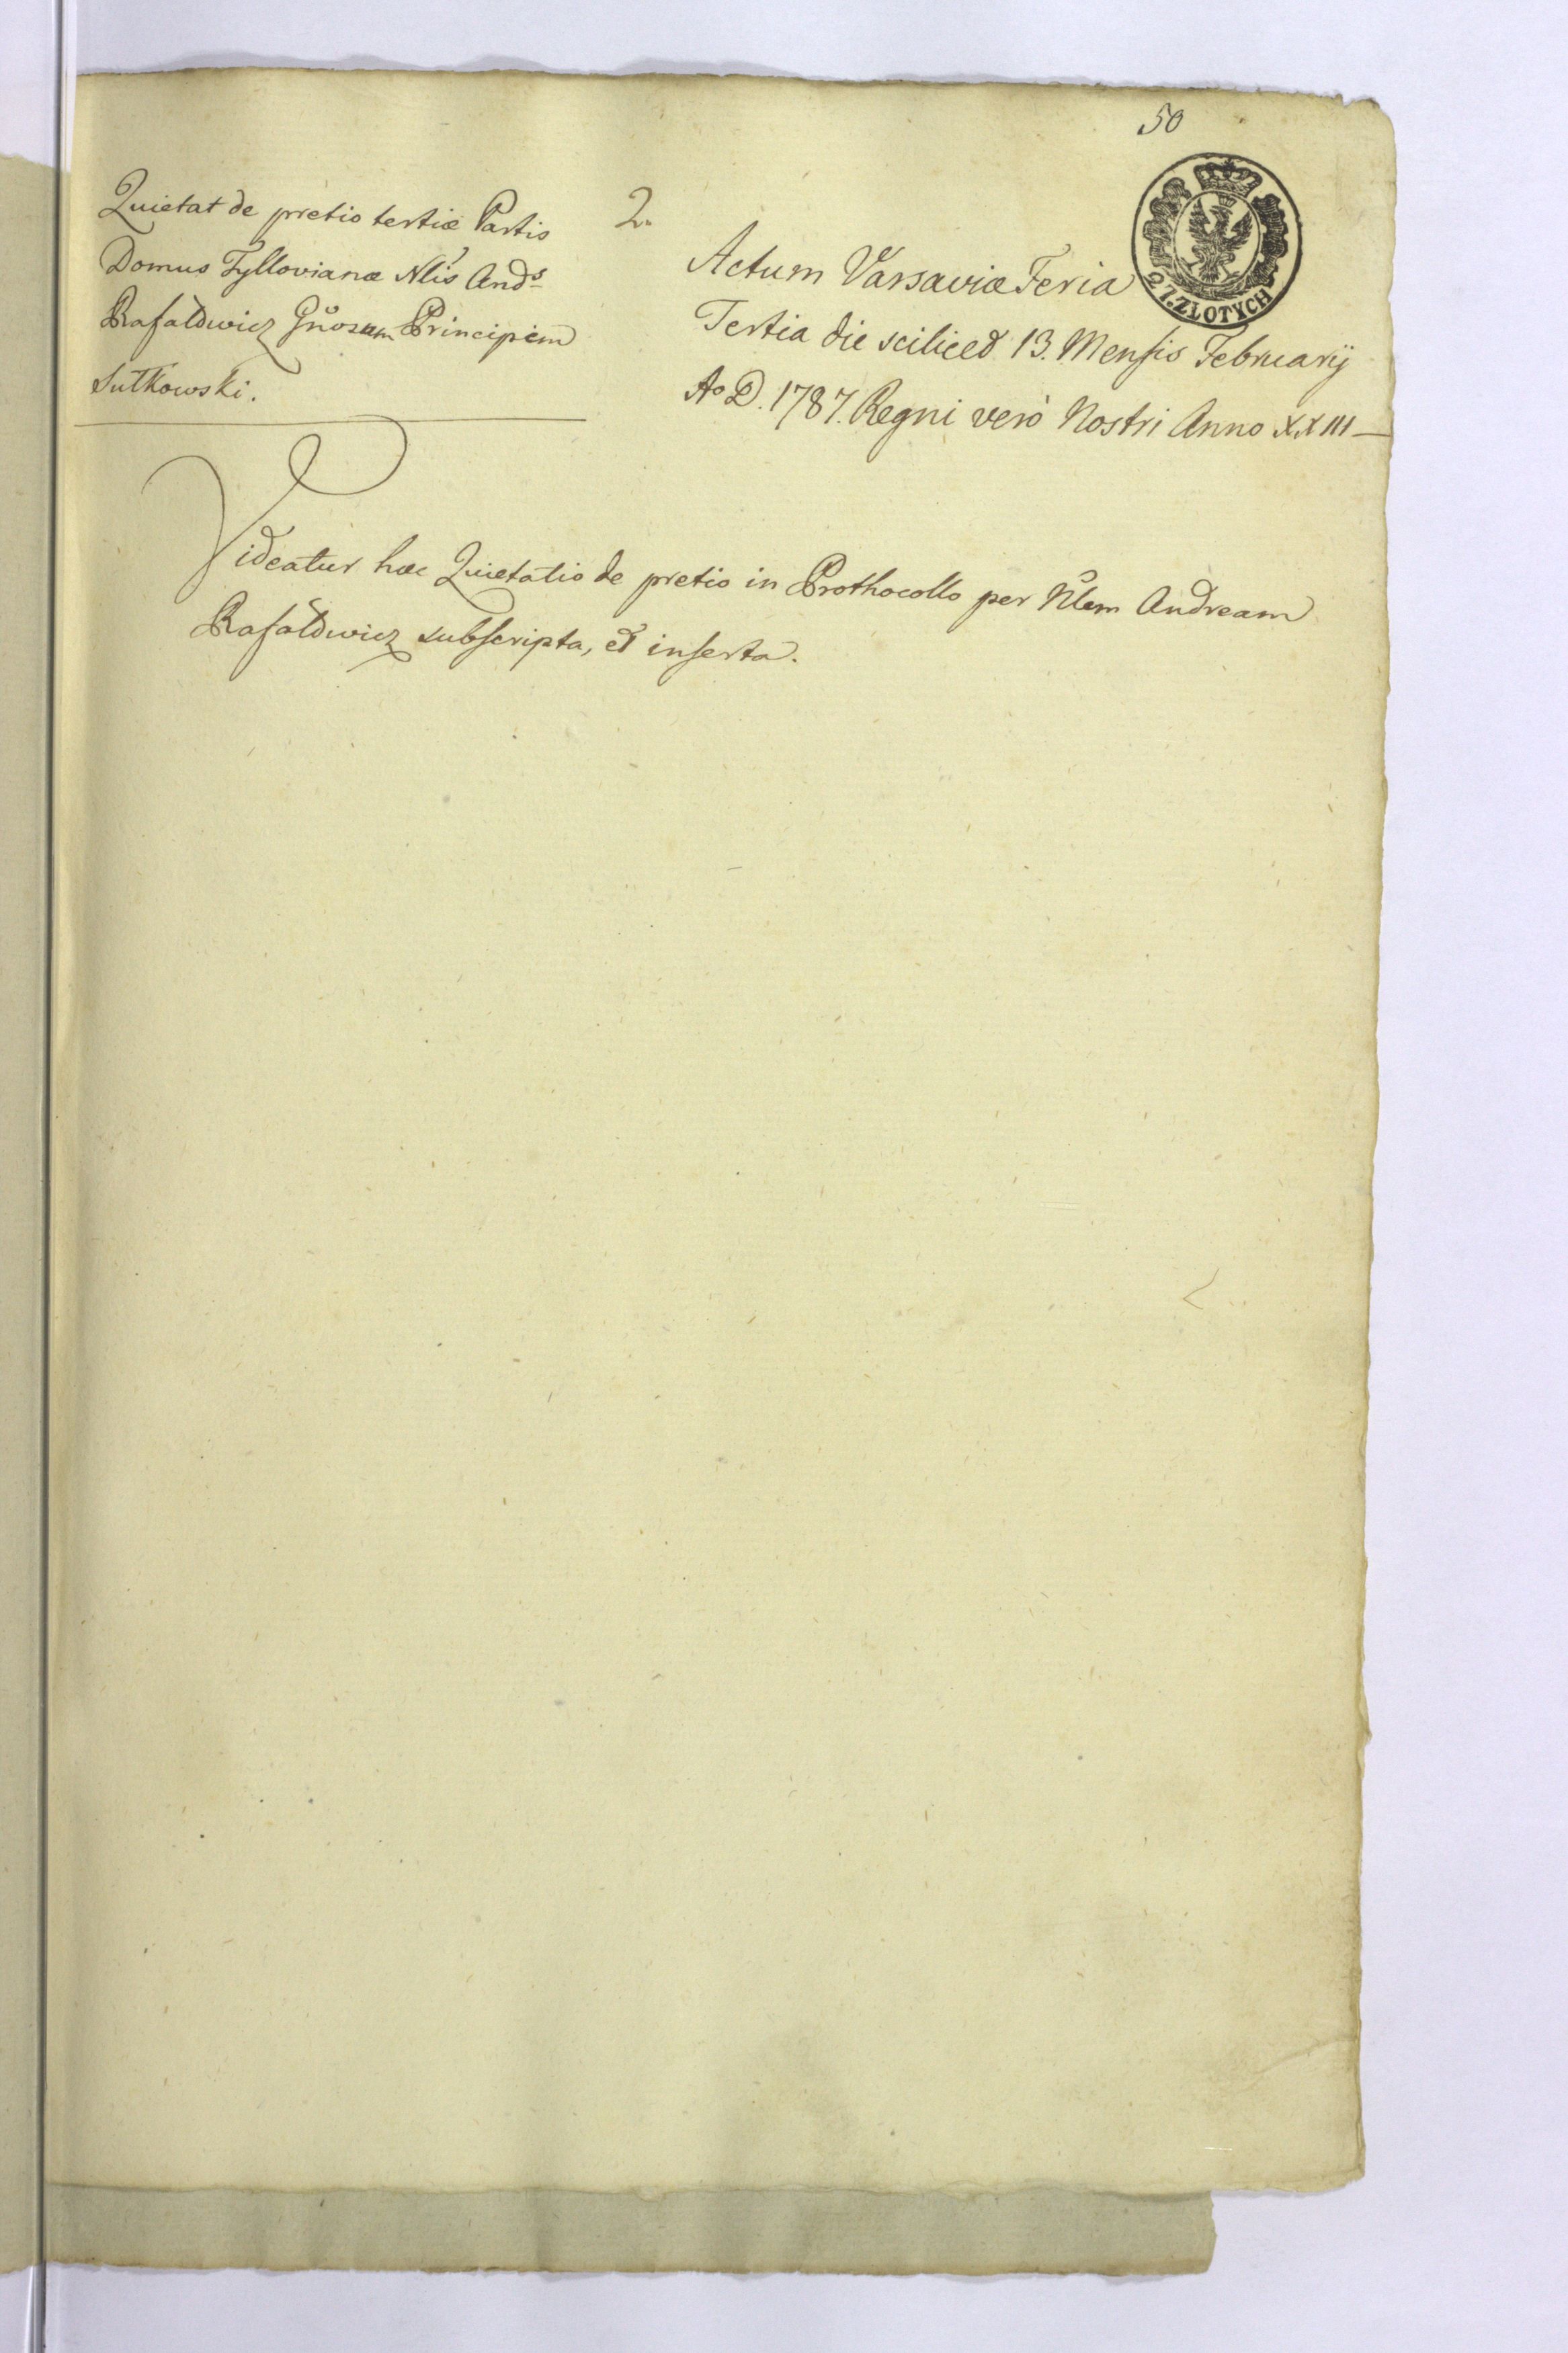 50
Quietat de pretio tertiæ Partis
Domus Tyllovianæ Nlis Ands
Rafałowicz Gnosum Principem
Sułkowski.
2.
27. ZŁOTYCH
Actum Varsaviæ Feria
Tertia die scilicet 13. Mensis February
Ao D. 1787. Regni verò Nostri Anno XXIII
Videatur hæc Quietatio de pretio in Prothocollo per Nlem Andream
Rafałowicz subscripta, et inserta.